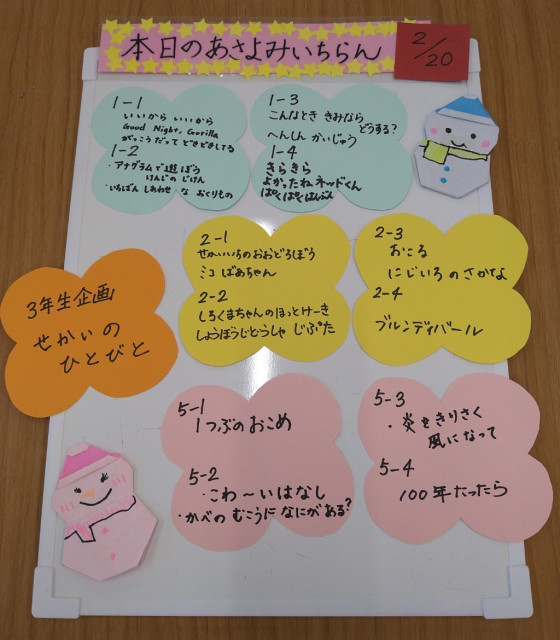 本日のあさよみいちらん
2/20
1-1
いいから いいから
Good Night, Gorilla
がっこうだって どきどきしてる
1-2
・アナグラムで遊ぼう
けんじの じけん
・いちばん しあわせ な おくりもの
1-3
こんなとき きみなら
どうする?
へんしん かいじゅう
1-4
きらきら
よかったね ネッドくん
ぱくぱくはんぶん
2-1
せかいいちのおおどろぼう
ミコ ばあちゃん
2-2
しろくまちゃんのほっとけーき
しょうぼうじどうしゃ じぷた
2-3
おこる
にじいろ の さかな
2-4
ブルンディバール
3年生企画
せかいの
ひとびと
5-1
1つぶのおこめ
5-2
・こわ〜いはなし
・かべの むこうに なにがある?
5-3
・炎をきりさく
風になって
5-4
100年たったら